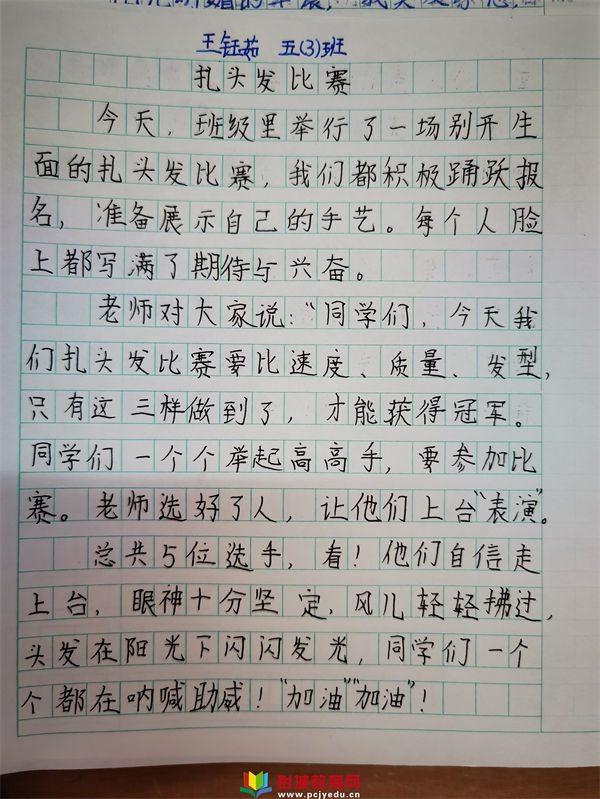 王钰茹 五(3)班
扎头发比赛
今天，班级里举行了一场别开生
面的扎头发比赛，我们都积极踊跃报
名，准备展示自己的手艺。每个人脸
上都写满了期待与兴奋。
老师对大家说：“同学们，今天我
们扎头发比赛要比速度、质量、发型，
只有这三样做到了，才能获得冠军。
同学们一个个举起高高手，要参加比
赛。老师选好了人，让他们上台“表演”。
总共5位选手，看！他们自信走
上台，眼神十分坚定，风儿轻轻拂过，
头发在阳光下闪闪发光，同学们一个
个都在呐喊助威！“加油”“加油”！
教育网
www.pcjyedu.cn